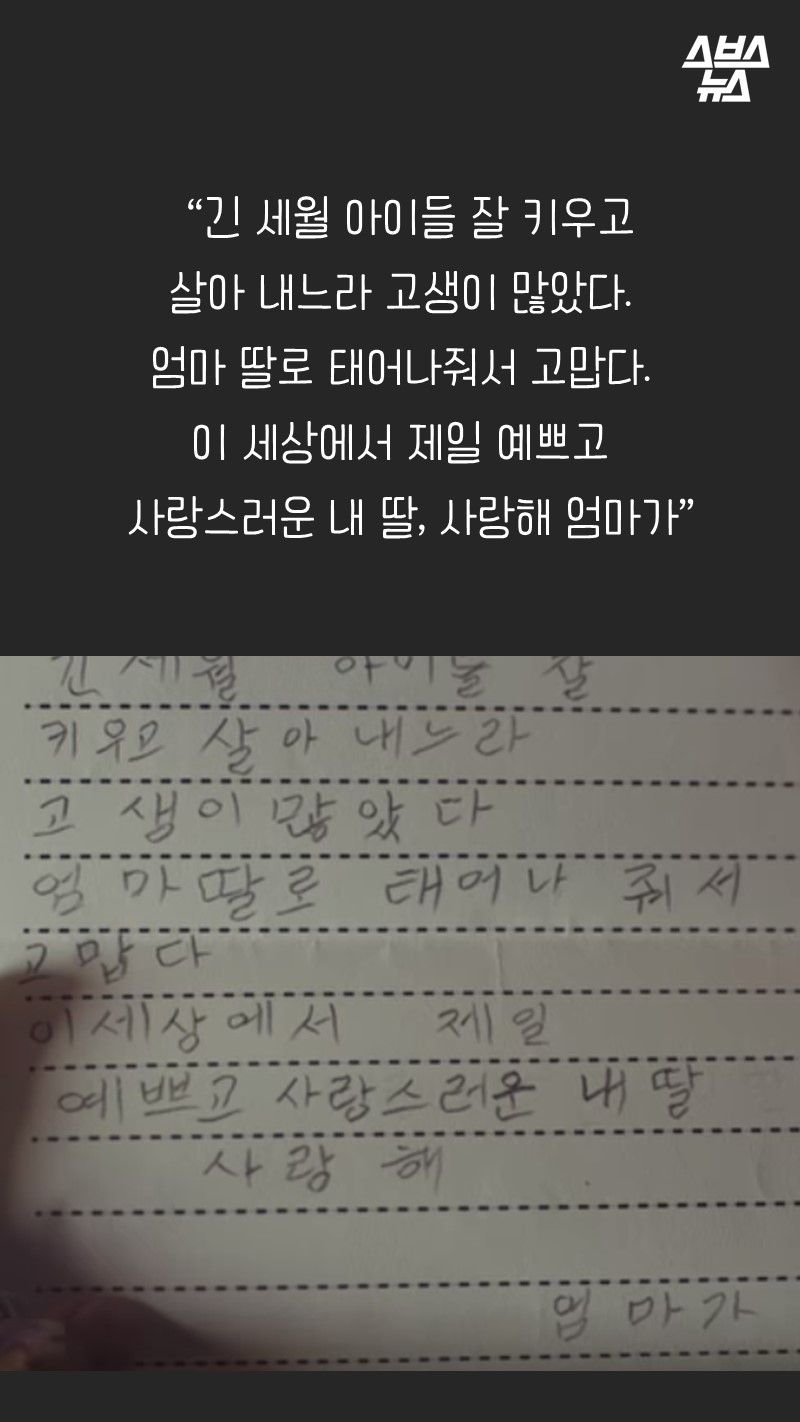 스브스
뉴스
“긴 세월 아이들 잘 키우고
살아 내느라 고생이 많았다.
엄마 딸로 태어나줘서 고맙다.
이 세상에서 제일 예쁘고
사랑스러운 내 딸, 사랑해 엄마가”
긴 세월 아이들 잘
키우고 살아 내느라
고 생이 많았 다
엄 마딸로 태어나 줘서
고맙다
이세상에서 제일
예쁘고 사랑스러운 내 딸
사랑 해
엄 마가